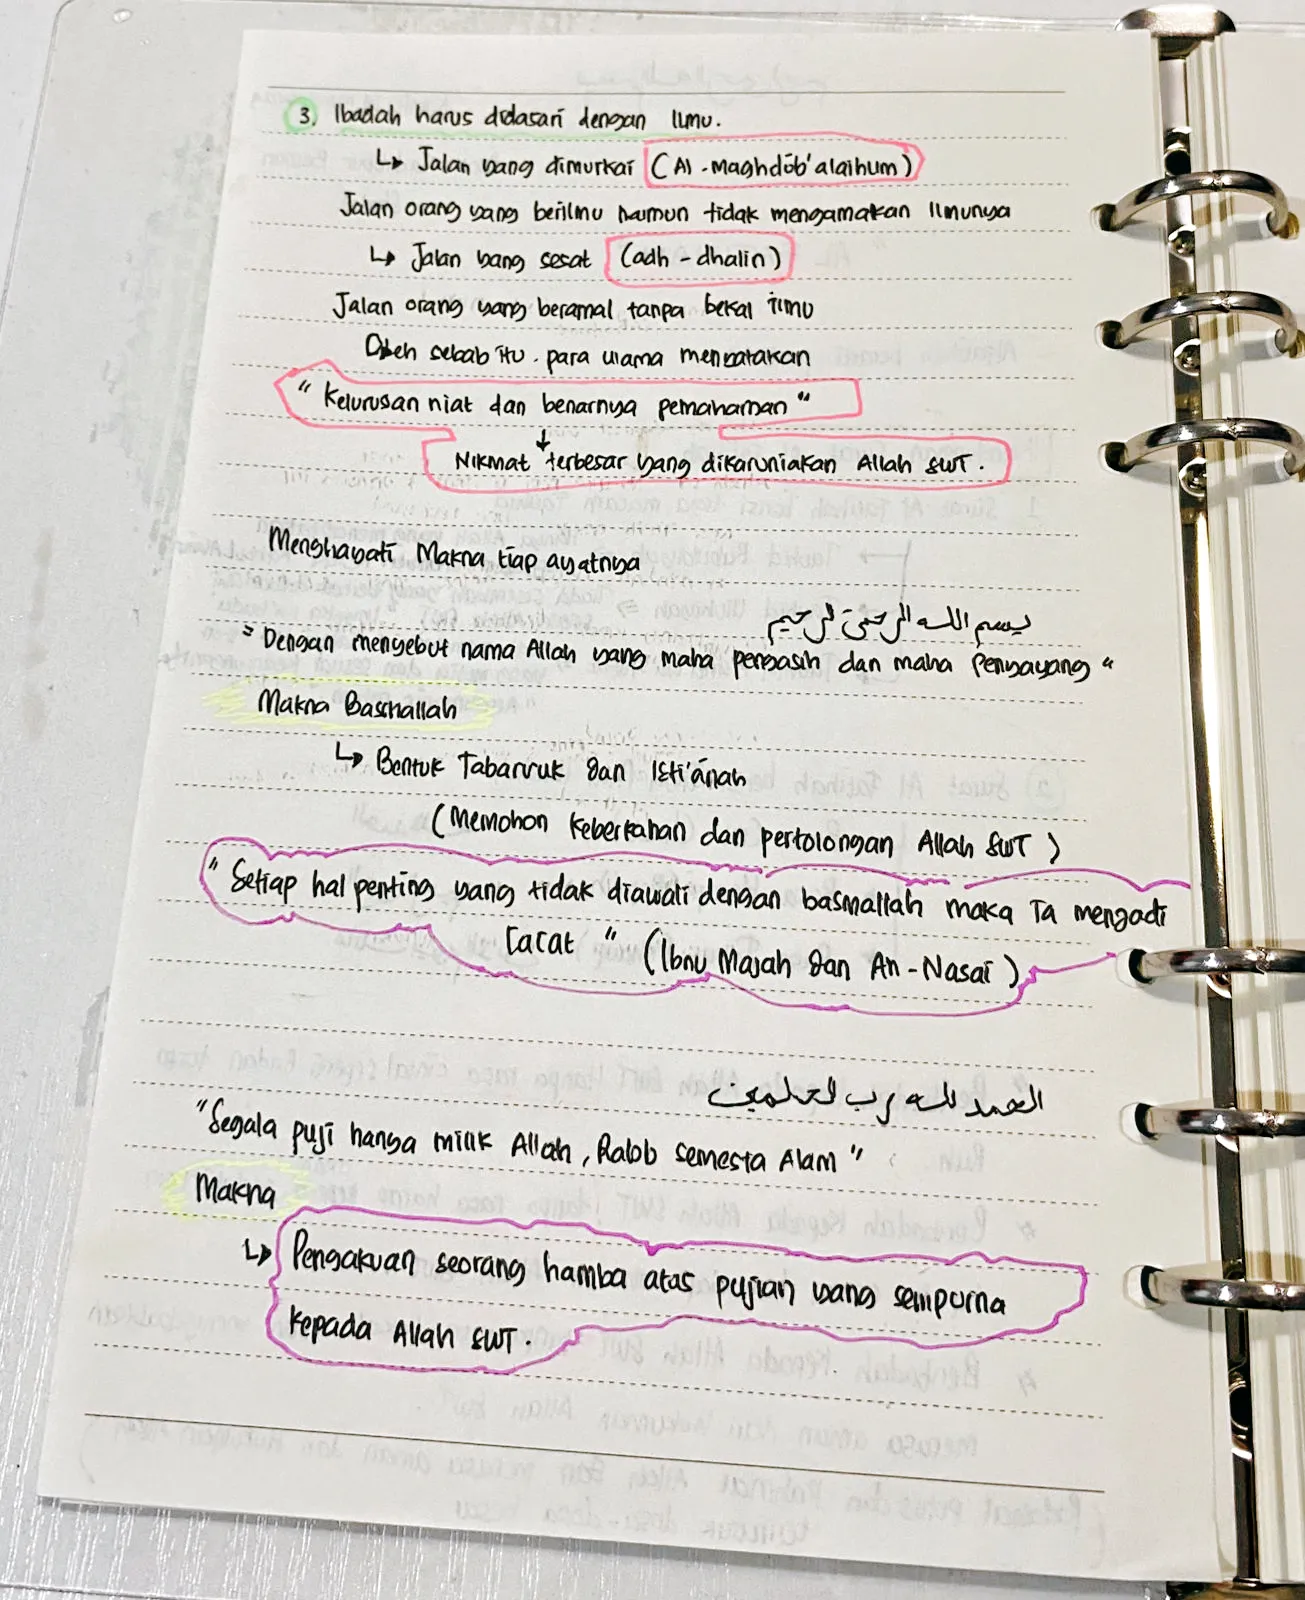 3. Ibadah harus didasari dengan Ilmu.
↳ Jalan yang dimurkai (Al-Maghdūb'alaihum)
Jalan orang yang berilmu namun tidak mengamakan Ilmunya
↳ Jalan yang sesat (adh-dhalin)
Jalan orang yang beramal tanpa bekal ilmu
Oleh sebab itu. para ulama mengatakan
"Kelurusan niat dan benarnya pemahaman"
↓
Nikmat terbesar yang dikaruniakan Allah SWT.
Menghayati Makna tiap ayatnya
بسم الله الرحمن الرحيم
"Dengan menyebut nama Allah yang maha pengasih dan maha Penyayang"
Makna Basmallah
↳ Bentuk Tabarruk dan Isti'ánah
(Memohon Keberkahan dan pertolongan Allah SWT)
"Setiap hal penting yang tidak diawali dengan basmallah maka Ia menjadi
Cacat" (Ibnu Majah dan An-Nasai)
الحمد لله رب العلمين
"Segala puji hanya milik Allah, Rabb semesta Alam"
Makna
↳ Pengakuan seorang hamba atas pujian yang sempurna
kepada Allah SWT.